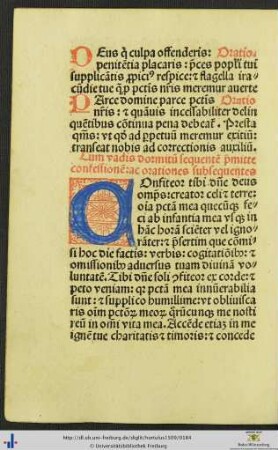 DEus q̃ culpa offenderis: Oratio.
penitẽtia placaris: p̃ces popłi tui
supplicãtis ꝓpici9 respice: ⁊ flagella ira
cũdie tue q̃ p petis nr̃is meremur auerte
PArce domine parce petis Oratio
nr̃is: ⁊ quãuis incessabiliter delin
quẽtibus cõtinua pena debeat᷑. Presta
qm̃s: vt qd̓ ad ppetuũ meremur exitiũ:
transeat nobis ad correctionis auxiliũ.
Cum vadis dormitũ sequentẽ p̃mitte
confessionẽ: ac orationes subsequentes
COnfiteor tibi dñe deus
omps: creator celi ⁊ terre:
oĩa petã mea quecũq̃ fe-
ci ab infantia mea vsq̃ in
hãc horã sciẽter vel igno-
rãter: ⁊ p̃sertim que cõmi-
si hoc die factis: verbis: cogitatiõibus: ⁊
omissionibus aduersus tuam diuinã vo-
luntatẽ. Tibi dñe soli ꝯfiteor ⁊ corde: ⁊
peto veniam: q petã mea innũerabilia
sunt: ⁊ supplico humillime: vt obliuisca
ris oĩm petõꝝ meoꝝ q̃rũcunq̃ me nosti
reũ in oĩm vita mea. Accẽde etiaz in me
ignẽ tue charitatis ⁊ timoris: ⁊ concede
http://dl.ub.uni-freiburg.de/diglit/hortulus1509/0184
© Universitätsbibliothek Freiburg
Baden-Württemberg